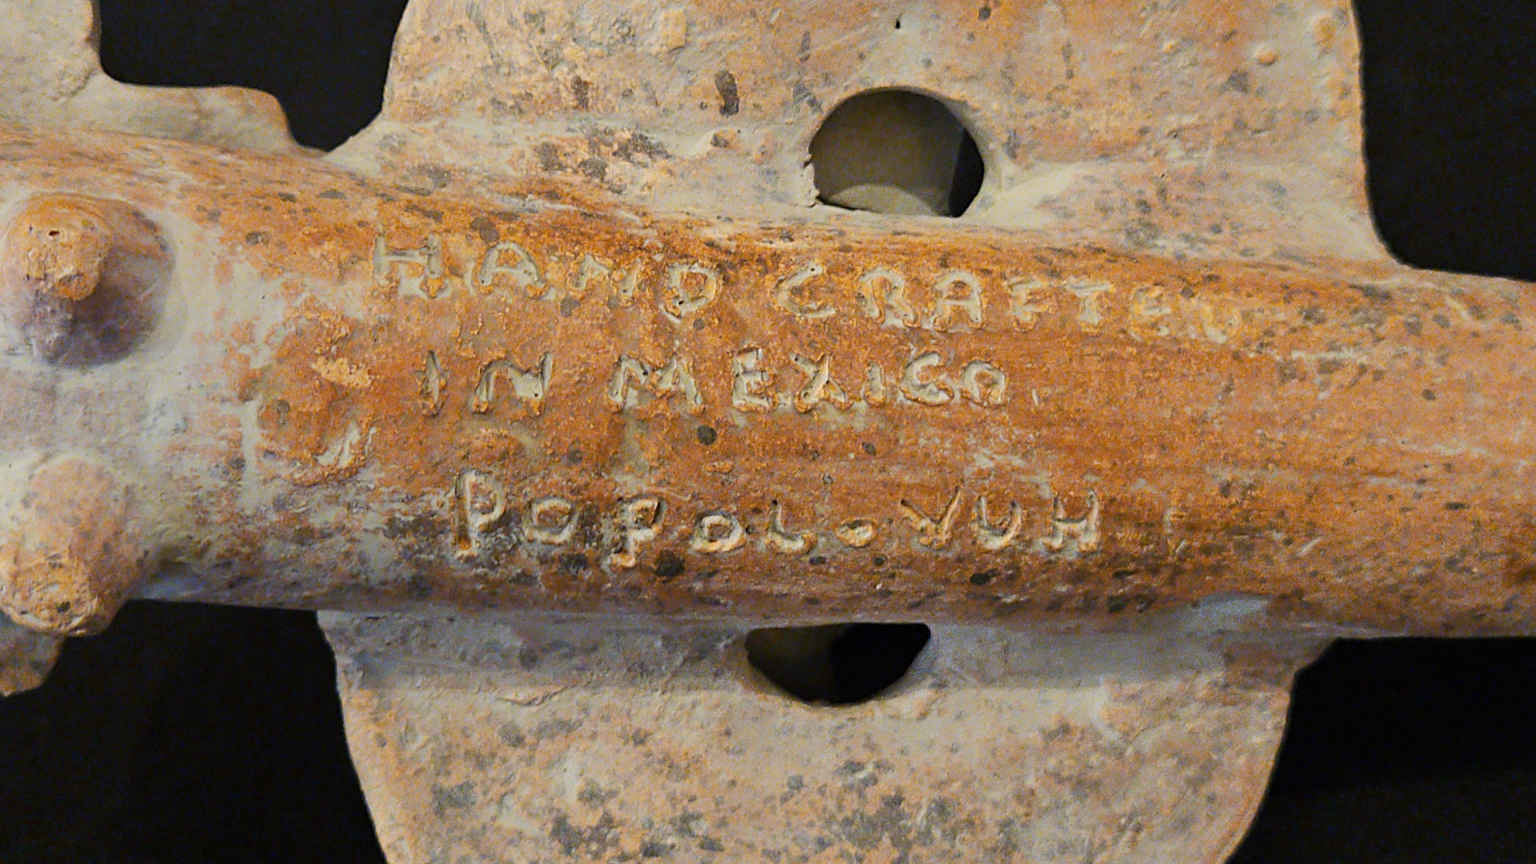 HAND CRAFTED
IN MEXICO
POPOL-VUH